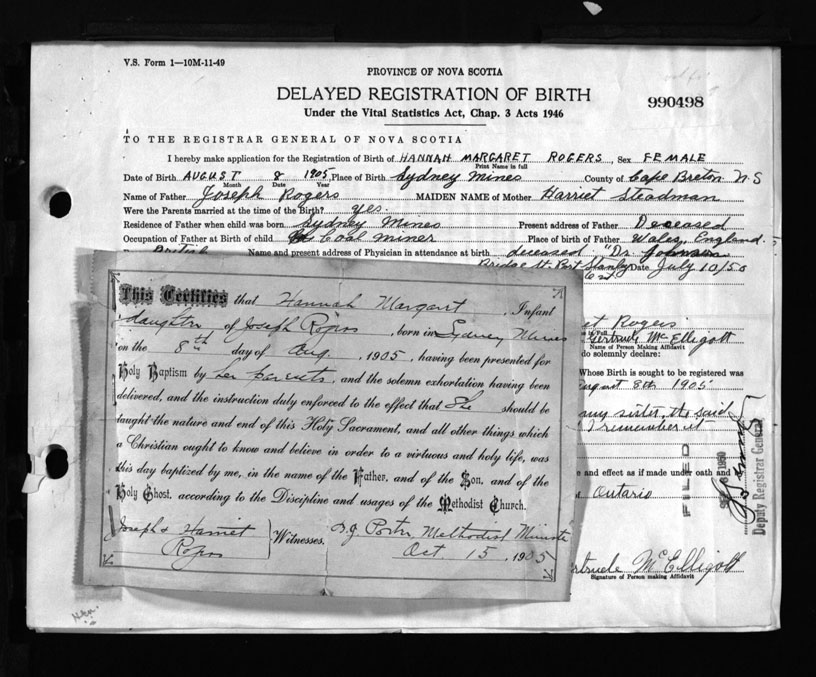 V.S. Form 1—10M-11-49
PROVINCE OF NOVA SCOTIA
DELAYED REGISTRATION OF BIRTH
990498
Under the Vital Statistics Act, Chap. 3 Acts 1946
TO THE REGISTRAR GENERAL OF NOVA SCOTIA
I hereby make application for the Registration of Birth of HANNAH MARGARET ROGERS, Sex FEMALE
Print Name in full
Date of Birth AUGUST 8 1905 Place of Birth Sydney Mines County of Cape Breton N.S
Month Date Year
Name of Father Joseph Rogers MAIDEN NAME of Mother Harriet Steadman
Were the Parents married at the time of the Birth? yes.
Residence of Father when child was born Sydney Mines Present address of Father Deceased
Occupation of Father at Birth of child Coal Miner Place of birth of Father Wales, England.
British Name and present address of Physician in attendance at birth deceased "Dr. Johnson
Bridge St. Port Stanley Date July 10/50
Ont.
This Certifies that Hannah Margart, Infant
daughter, of Joseph Rogers, born in Sydney Mines
on the 8th day of Aug. 1905, having been presented for
Holy Baptism by her parents, and the solemn exhortation having been
delivered, and the instruction duly enforced to the effect that She should be
taught the nature and end of this Holy Sacrament, and all other things which
a Christian ought to know and believe in order to a virtuous and holy life, was
this day baptized by me, in the name of the Father, and of the Son, and of the
Holy Ghost, according to the Discipline and usages of the Methodist Church.
Joseph & Harriet
Rogers
Witnesses.
Methodist Minister
Oct 15, 1905
et Rogers
Gertrude McElligott
Name of Person Making Affidavit
do solemnly declare:
Whose Birth is sought to be registered was
August 8th 1905
my sister, the said
I remember it
e and effect as if made under oath and
Ontario
FILED
Deputy Registrar General
rtrude McElligott
Signature of Person making Affidavit